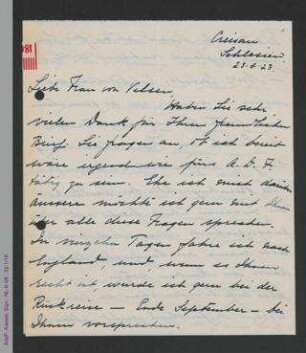 Creisau
Schlesien
23.8.23.
Liebe Frau von Velsen,
Haben Sie sehr
vielen Dank für Ihren freundlichen
Brief. Sie fragen an, ob ich bereit
wäre irgend wie fürs A.D.F.
tätig zu sein. Ehe ich mich darüber
äussere möchte ich gern mit Ihnen
über alle diese Fragen sprechen.
In vierzehn Tagen fahre ich nach
England, und, wenn es Ihnen
recht ist, würde ich gern bei der
Rückreise – Ende September – bei
Ihnen vorsprechen.